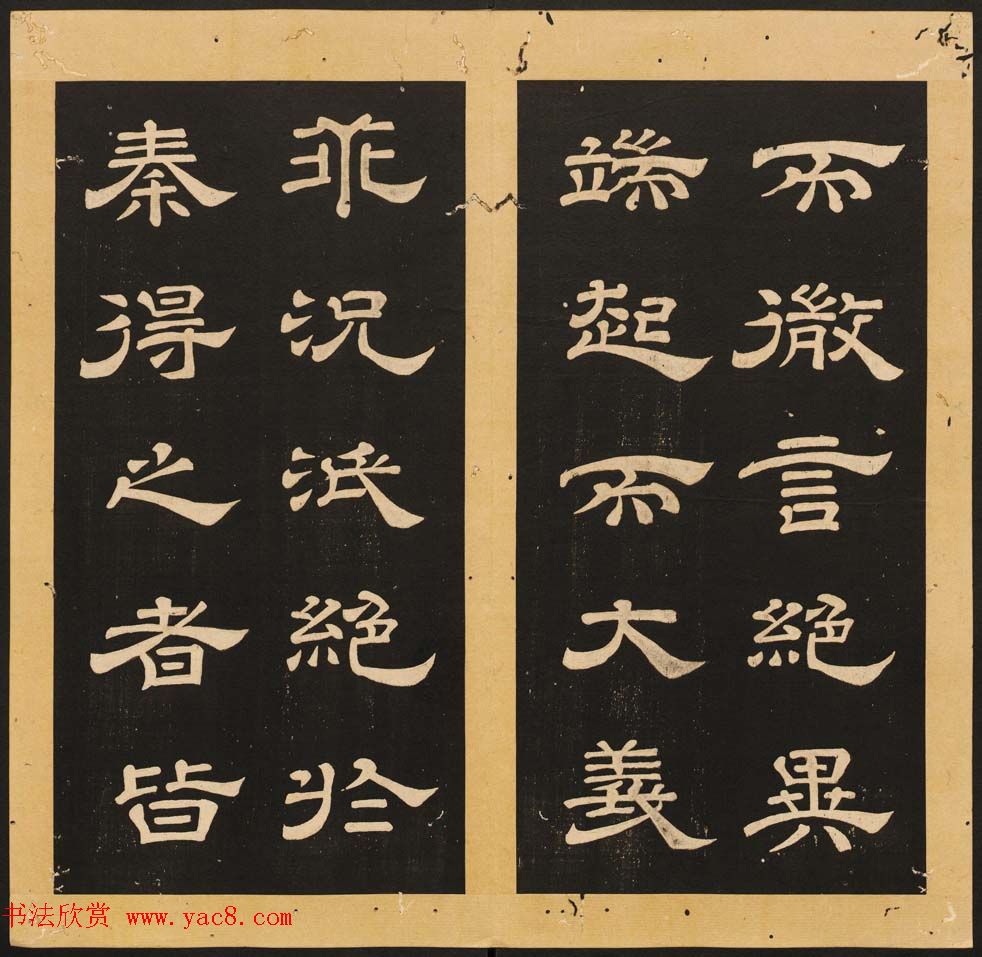 而微言絕異
端起而大義
乖況泯絕於
秦得之者皆
书法欣赏 www.yac8.com